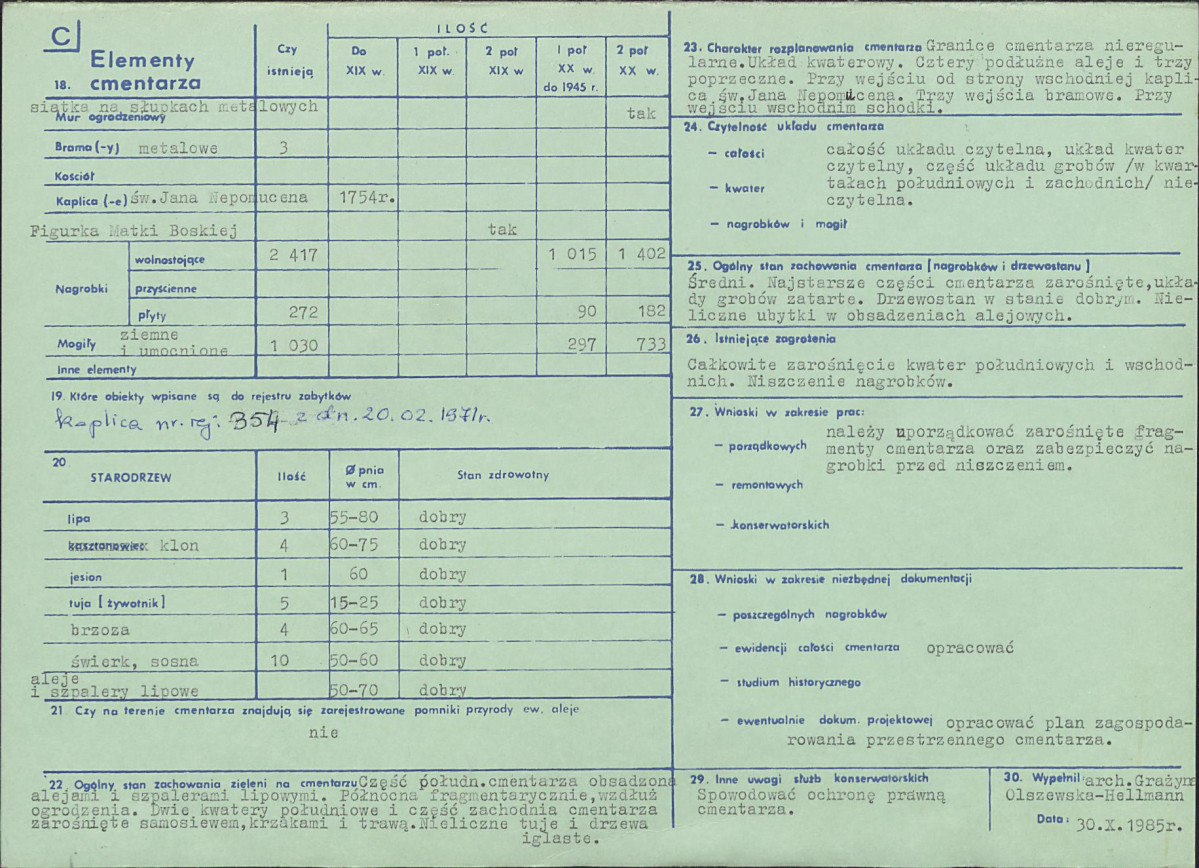 C
Elementy
18. cmentarza
Czy
istnieją
ILOŚĆ
Do
XIX w.
1 poł.
XIX w.
2 poł
XIX w
I poł
XX w.
do 1945 r.
2 poł
XX w.
siatka na słupkach metalowych
Mur ogrodzeniowy tak
Brama (-y) metalowe 3
Kościół
Kaplica (-e) św.Jana Nepomucena 1754r.
Figurka Matki Boskiej tak
Nagrobki
wolnostojące 2 417 1 015 1 402
przyścienne
płyty 272 90 182
Mogiły ziemne
i umocnione 1 030 297 733
Inne elementy
19. Które obiekty wpisane są do rejestru zabytków
kaplica nr. rej: 354 z dn. 20. 02. 1971r.
20
STARODRZEW Ilość Ø pnia
w cm. Stan zdrowotny
lipa 3 55-80 dobry
kasztanowiec klon 4 60-75 dobry
jesion 1 60 dobry
tuja [żywotnik] 5 15-25 dobry
brzoza 4 60-65 dobry
świerk, sosna 10 50-60 dobry
aleje
i szpalery lipowe 50-70 dobry
21 Czy na terenie cmentarza znajdują się zarejestrowane pomniki przyrody ew. aleje
nie
22. Ogólny stan zachowania zieleni na cmentarzu Część połudn.cmentarza obsadzona
alejami i szpalerami lipowymi. Północna fragmentarycznie,wzdłuż
ogrodzenia. Dwie kwatery południowe i część zachodnia cmentarza
zarośnięte samosiewem,krzakami i trawą.Nieliczne tuje i drzewa
iglaste.
23. Charakter rozplanowania cmentarza Granice cmentarza nieregu-
larne.Układ kwaterowy. Cztery podłużne aleje i trzy
poprzeczne. Przy wejściu od strony wschodniej kapli-
ca św.Jana Nepomucena. Trzy wejścia bramowe. Przy
wejściu wschodnim schodki.
24. Czytelność układu cmentarza
– całości całość układu czytelna, układ kwater
czytelny, część układu grobów /w kwar-
– kwater tałach południowych i zachodnich/ nie-
czytelna.
– nagrobków i mogił
25. Ogólny stan zachowania cmentarza [nagrobków i drzewostanu]
Średni. Najstarsze części cmentarza zarośnięte,ukła-
dy grobów zatarte. Drzewostan w stanie dobrym. Nie-
liczne ubytki w obsadzeniach alejowych.
26. Istniejące zagrożenia
Całkowite zarośnięcie kwater południowych i wschod-
nich. Niszczenie nagrobków.
27. Wnioski w zakresie prac:
należy uporządkować zarośnięte frag-
– porządkowych menty cmentarza oraz zabezpieczyć na-
grobki przed niszczeniem.
– remontowych
– konserwatorskich
28. Wnioski w zakresie niezbędnej dokumentacji
– poszczególnych nagrobków
– ewidencji całości cmentarza opracować
– studium historycznego
– ewentualnie dokum. projektowej opracować plan zagospoda-
rowania przestrzennego cmentarza.
29. Inne uwagi służb konserwatorskich
Spowodować ochronę prawną
cmentarza.
30. Wypełnił arch.Grażyna
Olszewska-Hellmann
Data: 30.X.1985r.